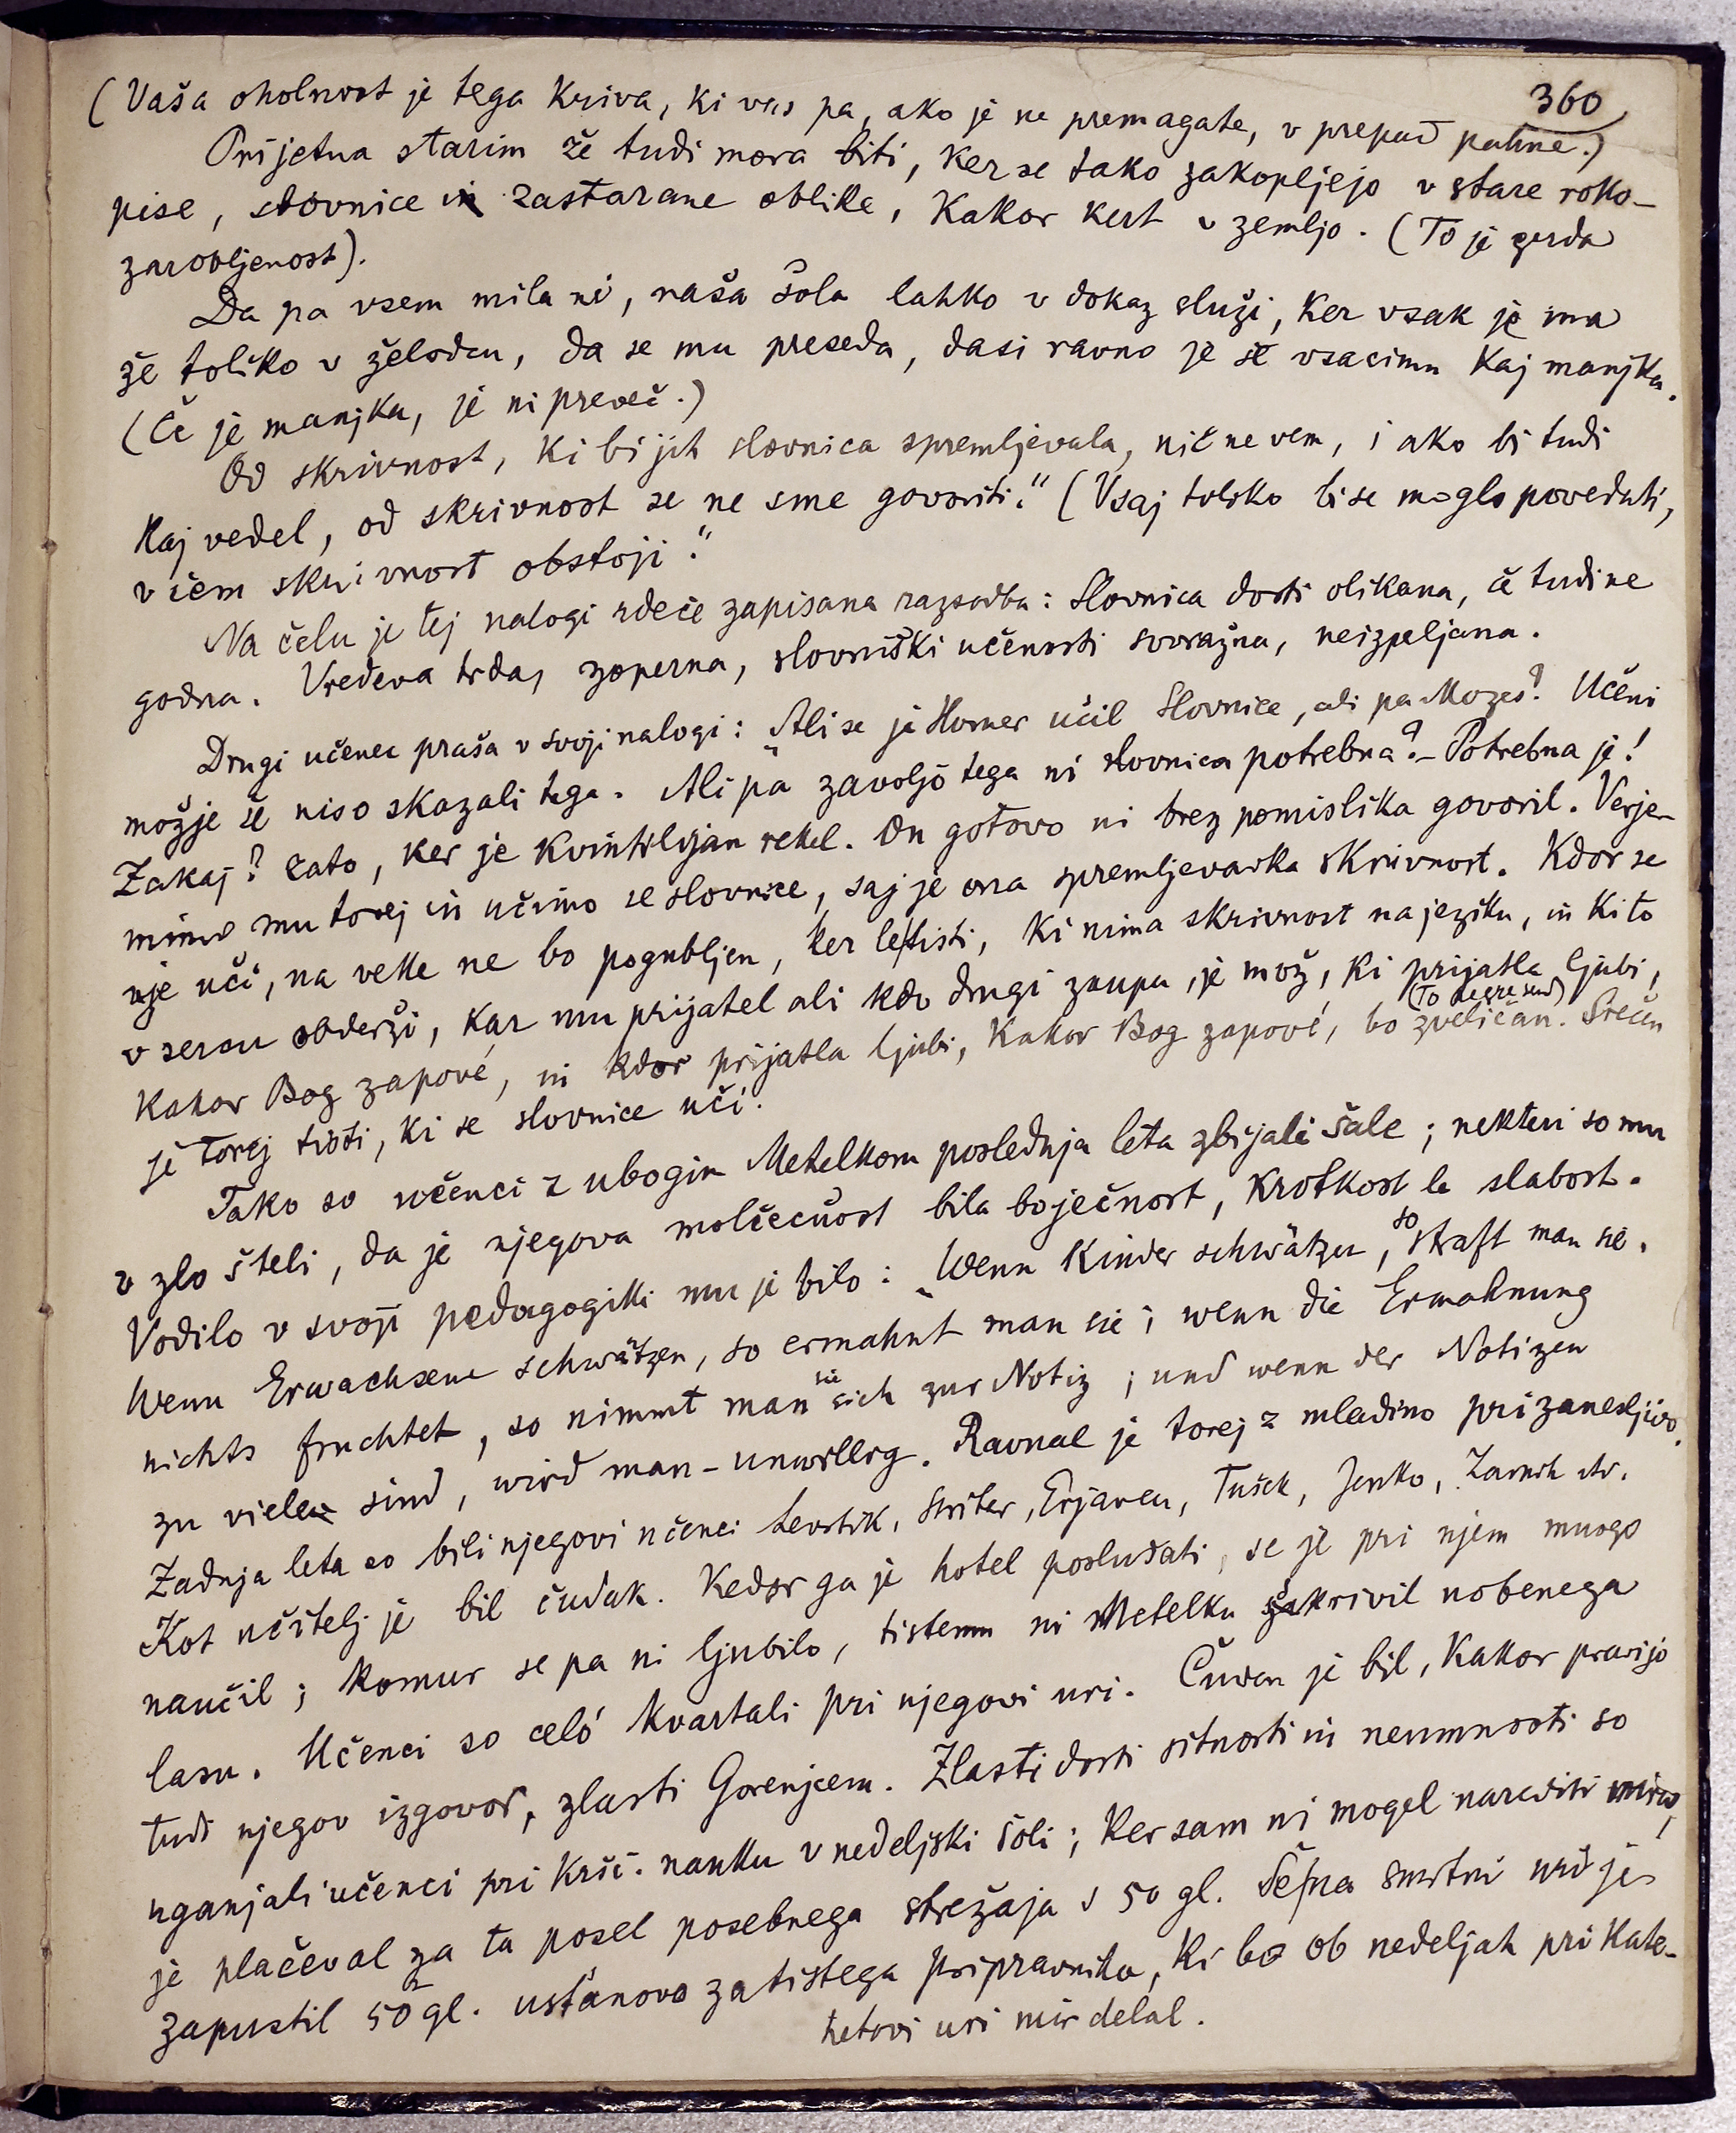 360
(Vaša oholnost je tega kriva, ki vas pa, ako je ne premagate, v prepad pahne.)
Prijetna starim že tudi mora biti, ker se tako zakopljejo v stare roko-
pise, slovnice in zastarane oblike, kakor kert v zemljo. (To je gerda
zarobljenost).
Da pa vsem mila ni, naša šola lahko v dokaz služi, ker vsak je ima
že toliko v želodcu, da se mu preseda, dasi ravno je še vsacimu kaj manjka.
(Če je manjka, je ni preveč.)
Od skrivnost, ki bi jih slovnica spremljevala, nič ne vem, i ako bi tudi
kaj vedel, od skrivnost se ne sme govoriti." (Vsaj toliko bi se moglo povedati,
v čem skrivnost obstoji."
Na čelu je tej nalogi rdeče zapisana razsodba: Slovnica dosti olikana, če tudi ne
godna. Vredeva trda, zoperna, slovniški učenosti sovražna, neizpeljana.
Drugi učenec praša v svoji nalogi: "Ali se je Homer učil slovnice, ali pa Mozes? Učeni
možje še niso skazali tega. Ali pa zavoljo tega ni slovnica potrebna? – Potrebna je!
Zakaj? Zato, ker je Kvintilijan rekel. On gotovo ni brez pomislika govoril. Verje-
mimo mu torej in učimo se slovnice, saj je ona spremljevavka skrivnost. Kdor se
nje uči, na veke ne bo pogubljen, ker le tisti, ki nima skrivnost na jeziku, in ki to
v sercu obderži, kar mu prijatel ali kdo drugi zaupa, je mož, ki prijatla ljubi,
kakor Bog zapové, in kdor prijatla ljubi, kakor Bog zapové, bo zveličan. Srečen
je torej tisti, ki se slovnice uči.
Tako so učenci z ubogim Metelkom poslednja leta zbijali šale; nekteri so mu
v zlo šteli, da je njegova molčečnost bila boječnost, krotkost le slabost.
Vodilo v svoji pedagogiki mu je bilo: "Wenn Kinder schwätzen, so straft man sie.
Wenn Erwachsene schwätzen, so ermahnt man sie; wenn die Ermahnung
nichts fruchtet, so nimmt man sie sich zur Notiz; und wenn der Notizen
zu viele sind, wird man – unwillig. Ravnal je torej z mladino prizanesljivo.
Zadnja leta so bili njegovi učenci Levstik, Stritar, Erjavec, Tušek, Jenko, Zarnik itd.
Kot učitelj je bil čudak. Kedor ga je hotel poslušati, se je pri njem mnogo
naučil; komur se pa ni ljubilo, tistemu ni Metelko skrivil nobenega
lasu. Učenci so celó kvartali pri njegovi uri. Čuden je bil, kakor pravijo
tudi njegov izgovor, zlasti Gorenjcem. Zlasti dosti sitnosti in neumnosti so
uganjali učenci pri kršč. nauku v nedeljski šoli; ker sam ni mogel narediti miru,
je plačeval za ta posel posebnega strežaja s 50 gl. Še na smrtni uri je
zapustil 50 gl. ustanovo za tistega pripravnika, ki bo ob nedeljah pri kate-
hetovi uri mir delal.